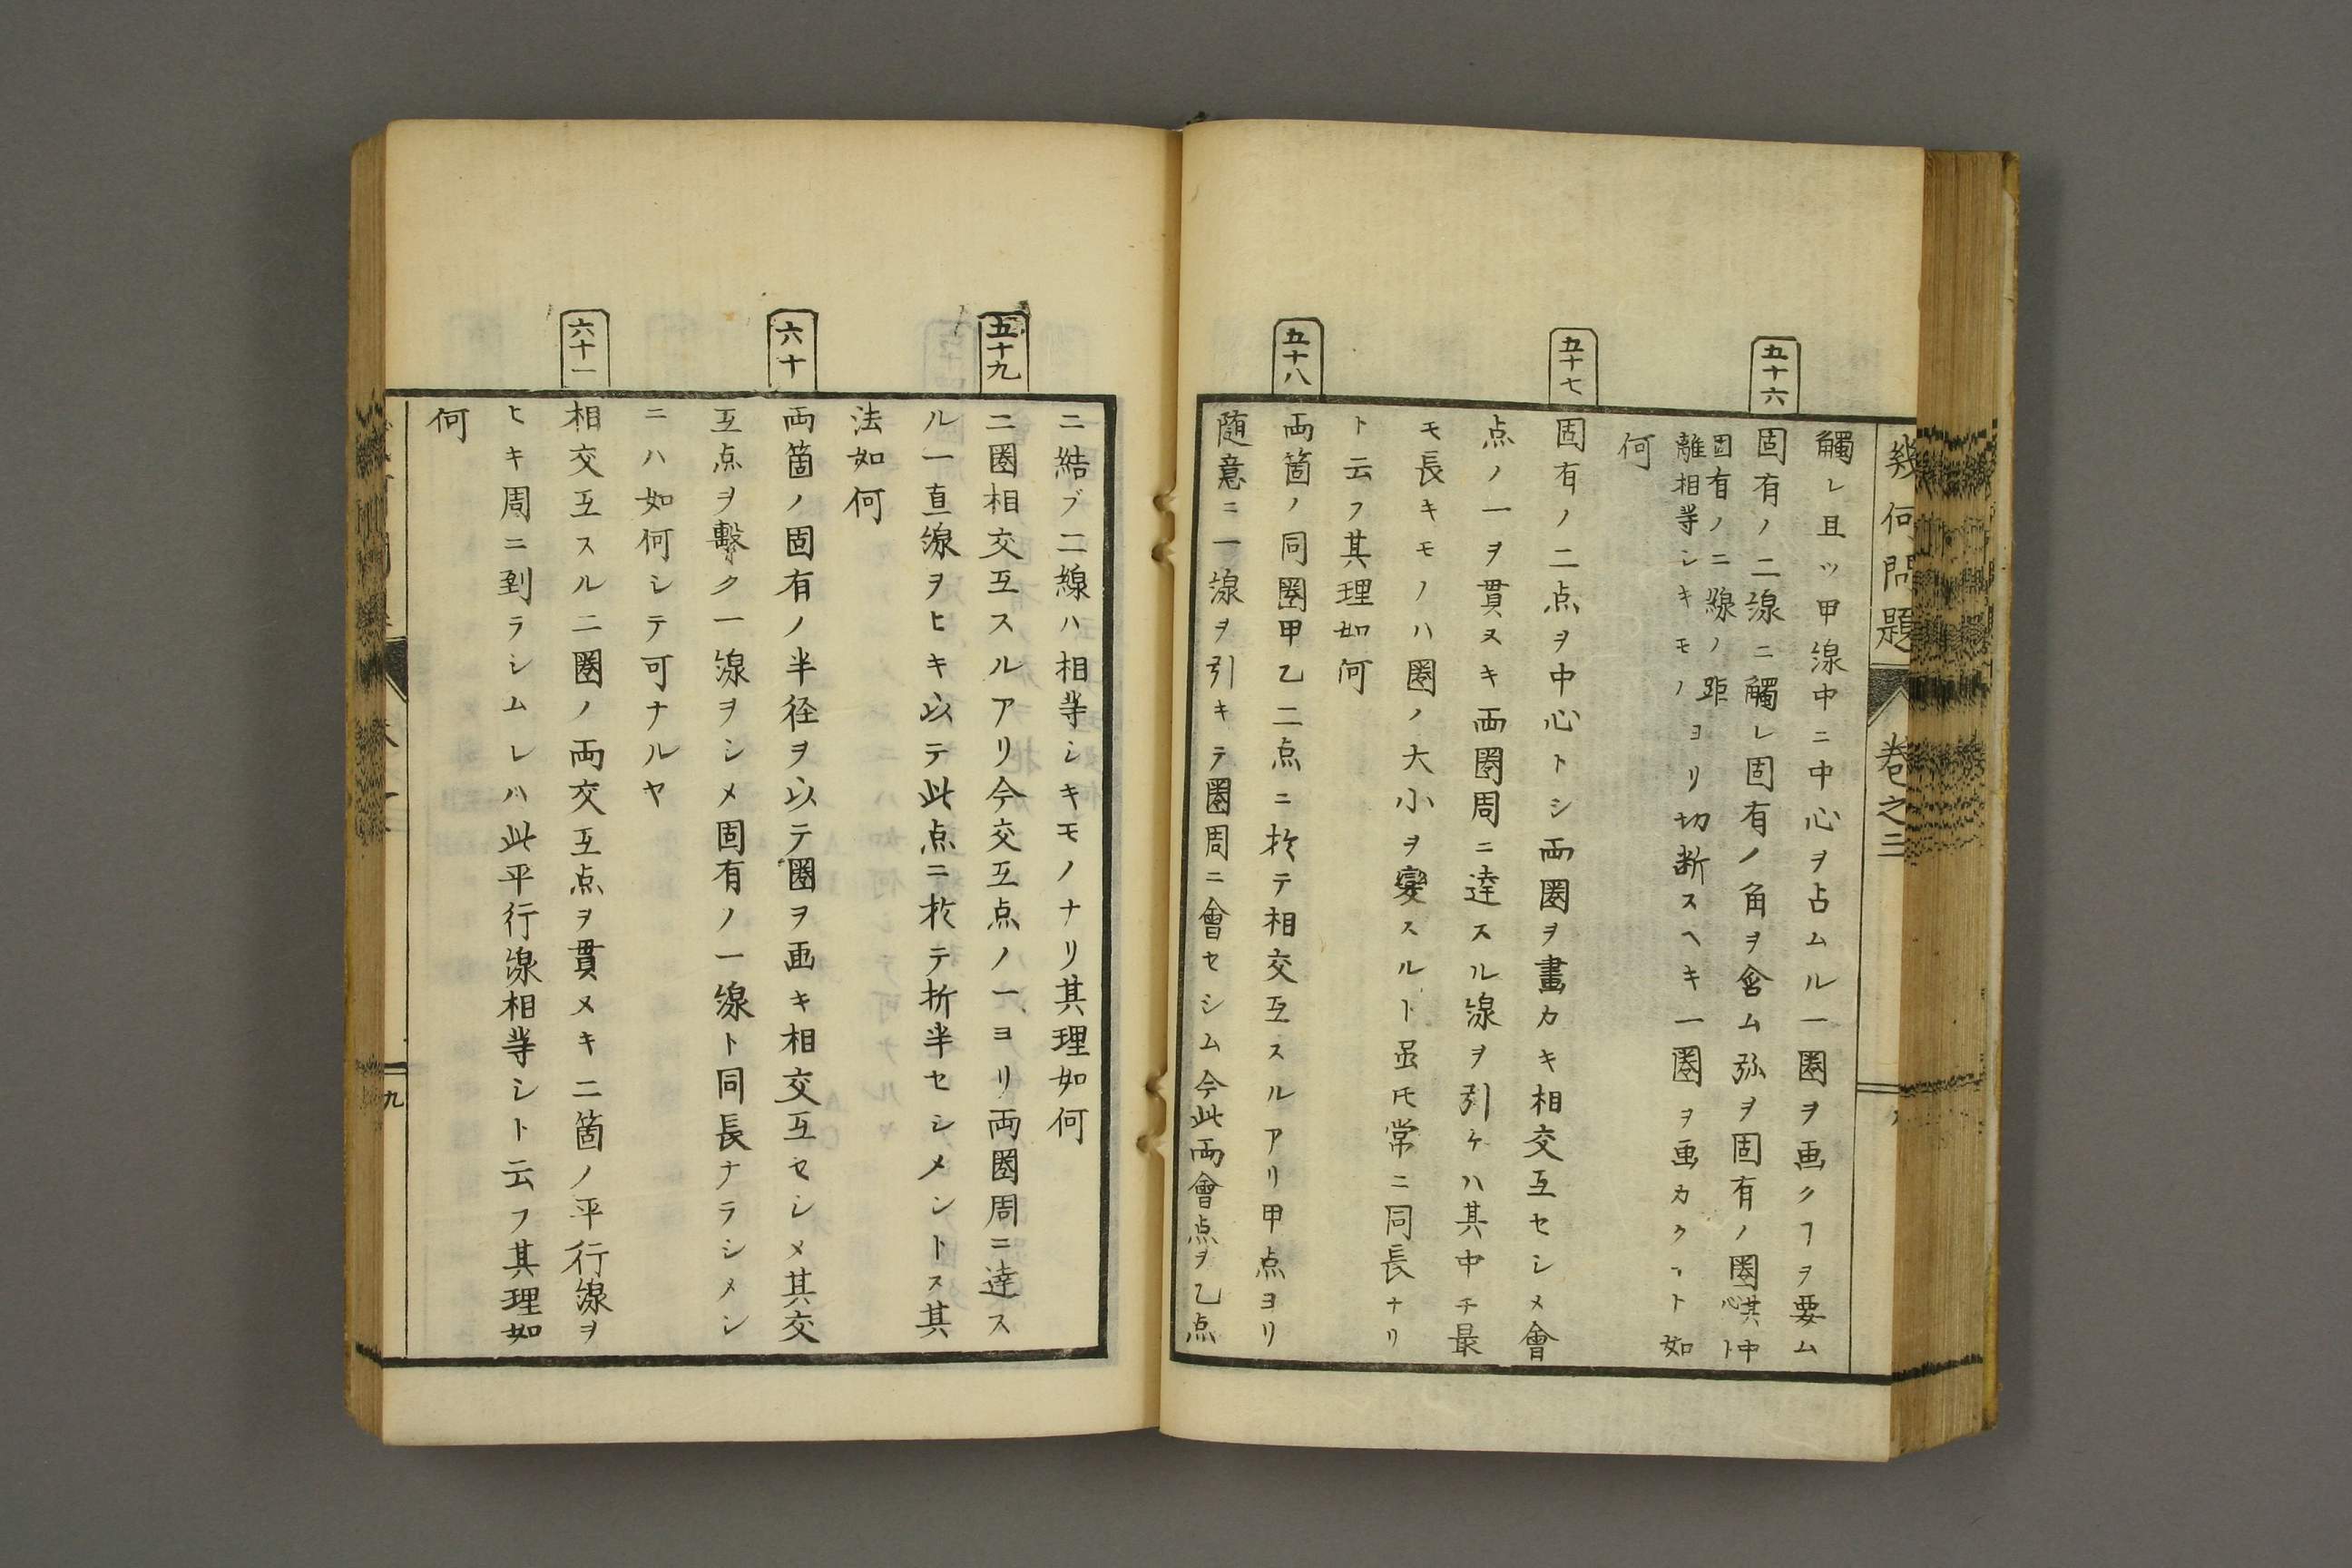 幾何問題 巻之三
觸レ且ツ甲線中ニ中心ヲ占ムル一圏ヲ画クヿヲ要ム
五十六
固有ノ二線ニ觸レ固有ノ角ヲ含ム弥ヲ固有ノ圏其中心ト
固有ノ二線ノ距
離相等シキモノヨリ切断スヘキ一圏ヲ画カクヿト如
何
五十七
固有ノ二点ヲ中心トシ両圏ヲ畫カキ相交互セシメ會
点ノ一ヲ貫ヌキ両圏周ニ達スル線ヲ引ケハ其中チ最
モ長キモノハ圏ノ大小ヲ変スルト虽𪜈常ニ同長ナリ
ト云フ其理如何
五十八
両箇ノ同圏甲乙二点ニ於テ相交互スルアリ甲点ヨリ
随意ニ一線ヲ引キテ圏周ニ會セシム今此両會点ヲ乙点
ニ結ブ二線ハ相等シキモノナリ其理如何
五十九
二圏相交互スルアリ今交互点ノ一ヨリ両圏周ニ達ス
ル一直線ヲヒキ以テ此点ニ於テ折半セシメントス其
法如何
六十
両箇ノ固有ノ半径ヲ以テ圏ヲ画キ相交互セシメ其交
互点ヲ擊ク一線ヲシメ固有ノ一線ト同長ナラシメン
ニハ如何シテ可ナルヤ
六十一
相交互スル二圏ノ両交互点ヲ貫メキ二箇ノ平行線ヲ
ヒキ周ニ到ラシムレハ此平行線相等シト云フ其理如
何
九